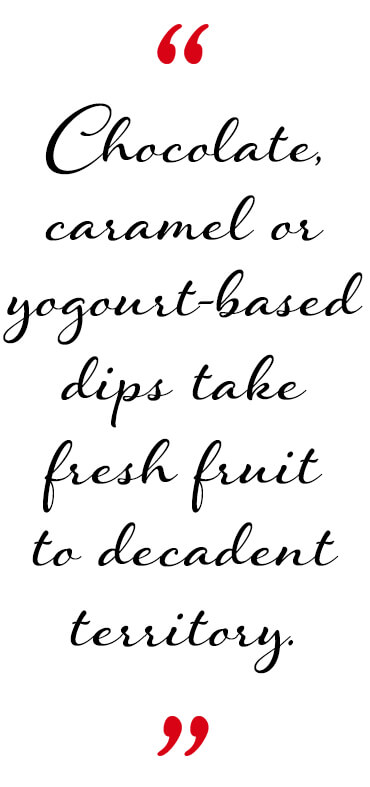 “
Chocolate,
caramel or
yogourt-based
dips take
fresh fruit
to decadent
territory.
”